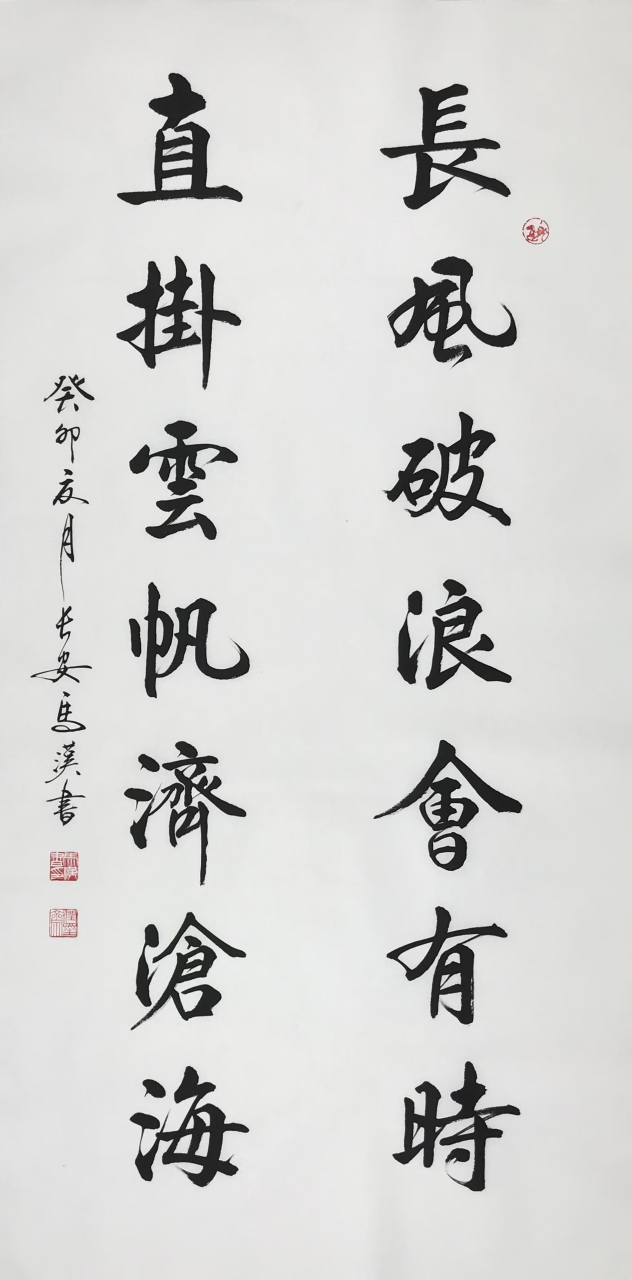 長風破浪會有時
直掛雲帆濟滄海
癸卯亥月长安馬漢書